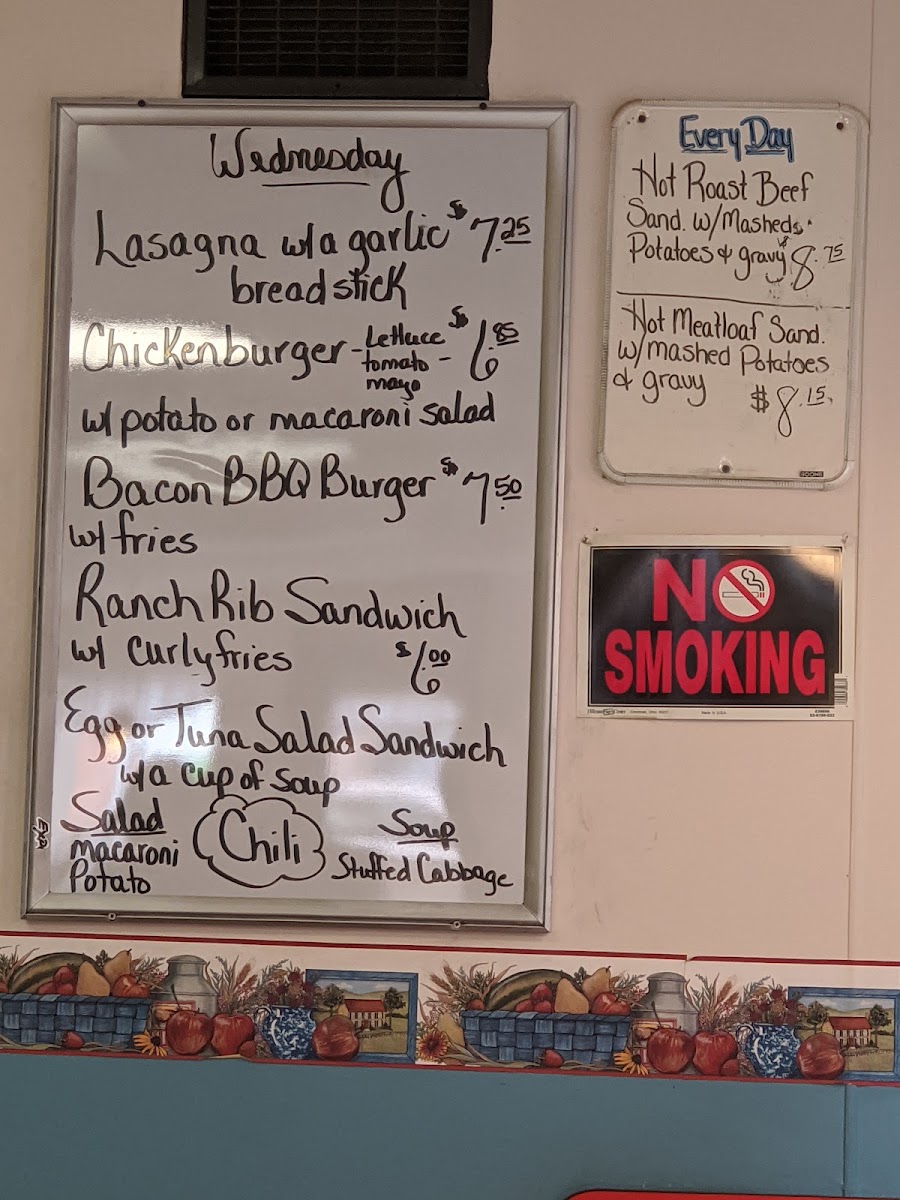 Wednesday
Lasagna w/a garlic $7.25
breadstick
Chickenburger - Lettuce
tomato - $6.85
mayo
w/ potato or macaroni salad
Bacon BBQ Burger $7.50
w/ fries
Ranch Rib Sandwich
w/ curly fries $6.00
Egg or Tuna Salad Sandwich
w/a cup of soup
Salad
macaroni
Potato
Chili
Soup
Stuffed Cabbage
Every Day
Hot Roast Beef
Sand. w/Masheds
Potatoes & gravy $8.75
Hot Meatloaf Sand.
w/mashed Potatoes
& gravy $8.15
NO
SMOKING